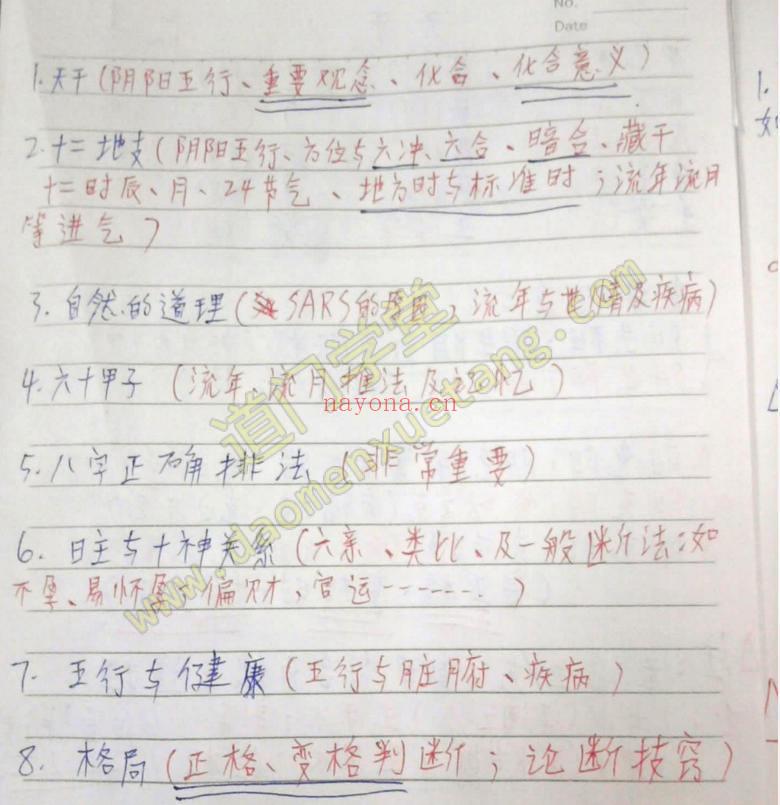 No.
Date
1.天干(阴阳五行、重要观念、化合、化合意义)
2.十二地支(阴阳五行、方位与六冲、六合、暗合、藏干
十二时辰、月、24节气、地方时与标准时;流年流月
等进气)
3.自然的道理(SARS的原因,流年与世情及疾病)
4.六十甲子(流年、流月推法及记忆)
nayona.cn
5.八字正确排法(非常重要)
6.日主与十神关系(六亲、类比、及一般断法:如
不孕、易怀孕,偏财,官运-------.)
7.五行与健康(五行与脏腑、疾病)
8.格局(正格、变格判断;论断技窍)
道门学堂
www.daomenxuetang.com
1.